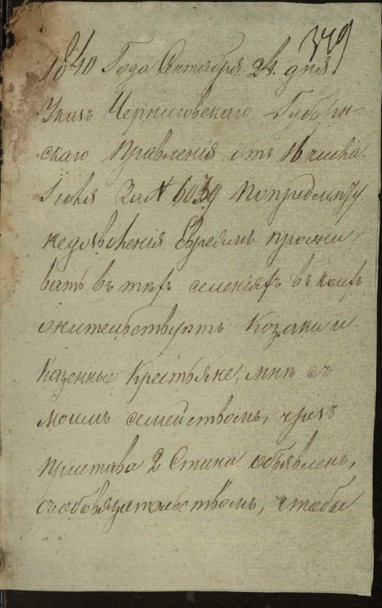 349
1840 Года Октября 24. дня
Указъ Черниговскаго Губерн-
скаго Правленія отъ 16 числа
Іюля За № 6039 попредмѣту
недозволенія Евреямъ прожи
вать въ тѣхъ селеніяхъ въ коихъ
жительствуютъ Козаки и
Казенные Крестьяне, мнѣ съ
моимъ семействомъ, чрезъ
Пристава 2 Стана объявленъ,
съ обязательствомъ, чтобы